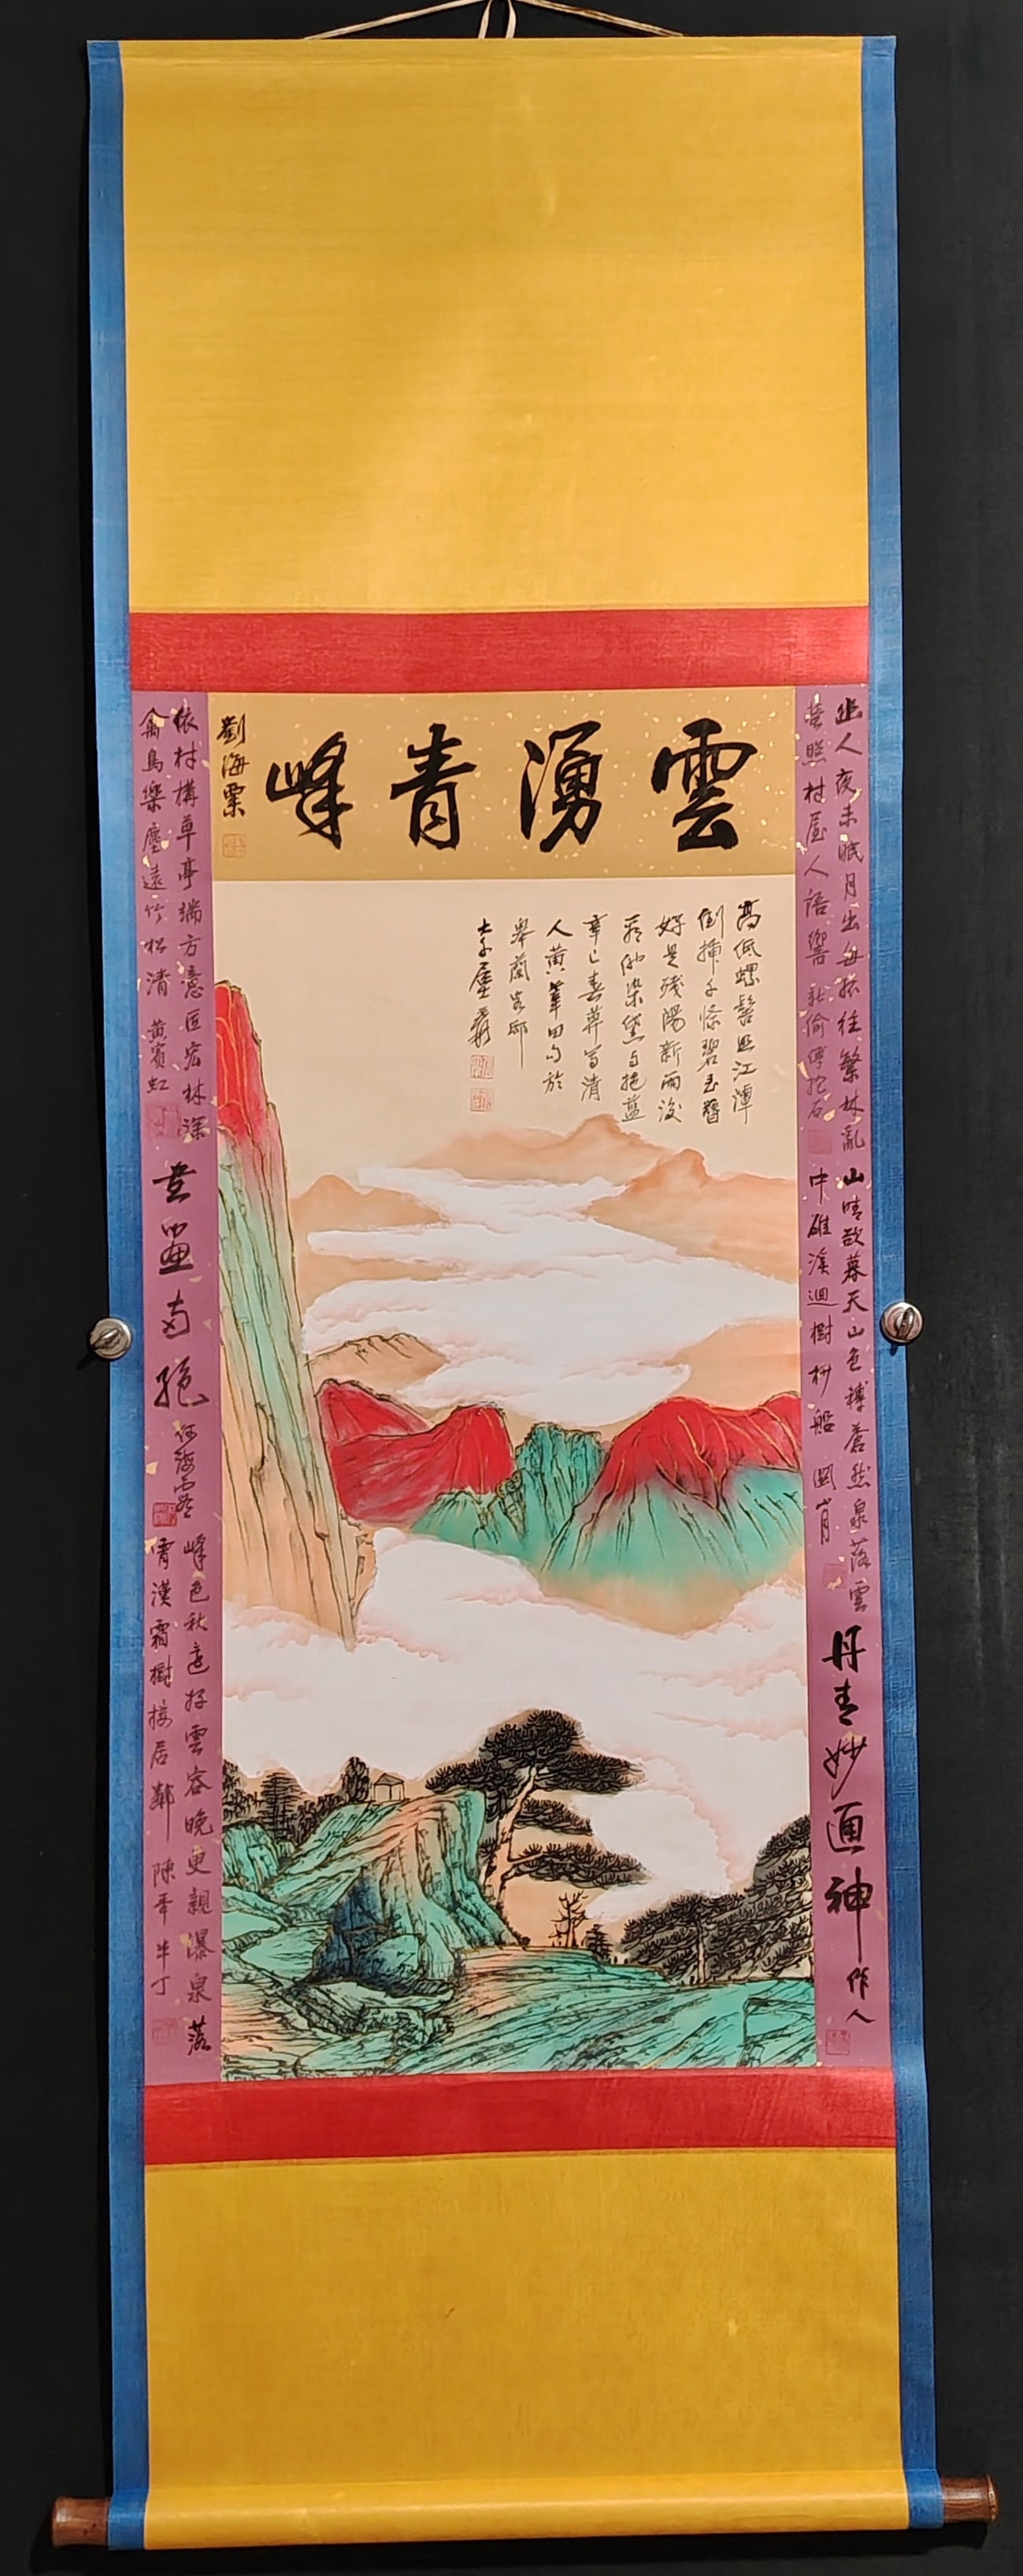 雲湧青峰
劉海粟
高低螺髻照江潭
倒插千條碧玉簪
好是殘陽新雨後
染黛与拖藍
辛巳春 寫清
人黃莘田句於
大千居士爰
幽人夜未眠月出每孤往繁林亂
螢照村屋人語響 傅抱石
山晴欲暮天山色蒼然泉落雲
中碓溪迴樹杪船 關山月
丹青妙通神 作人
依村構草亭端方意匠宏林深
禽鳥樂塵遠竹松清 黃賓虹
書畫兩絕
何海霞
峰色秋逾好雲容晚更親瀑泉落
霄漢霜樹接居鄰 陳半丁